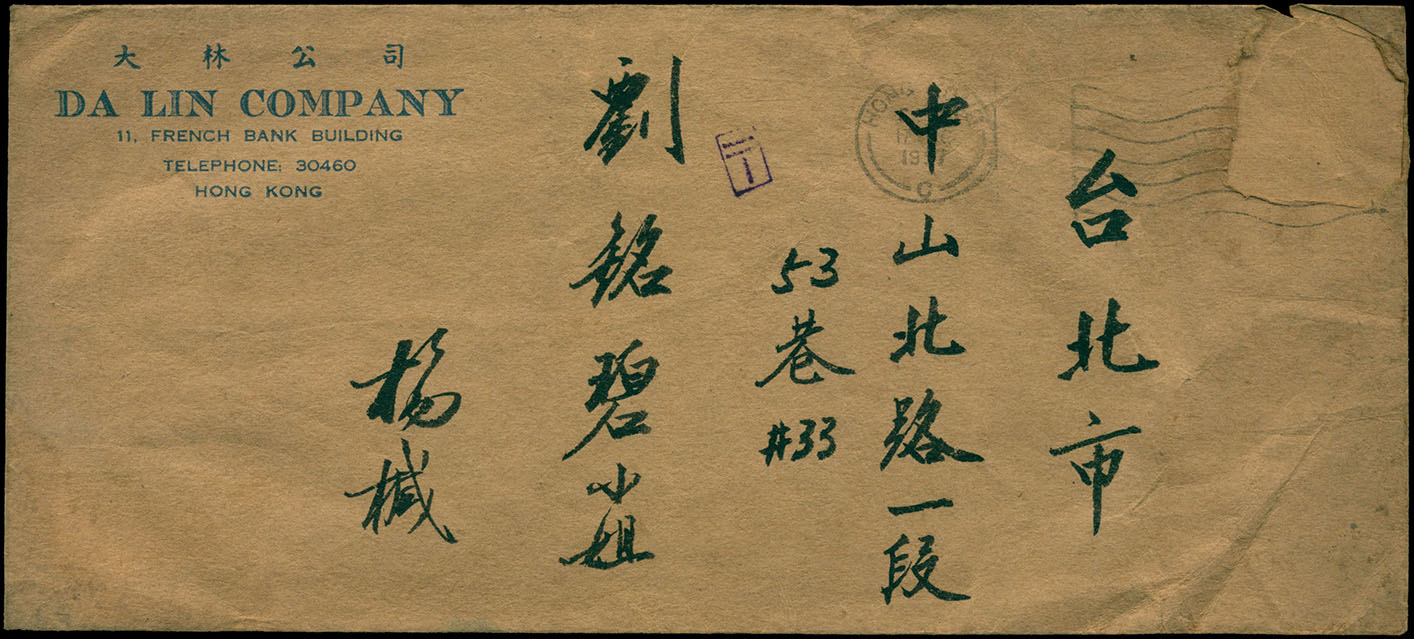 大林公司
DA LIN COMPANY
11, FRENCH BANK BUILDING
TELEPHONE: 30460
HONG KONG
台北市
中山北路一段
53巷#33
劉銘碧小姐
楊棫
HONG
C